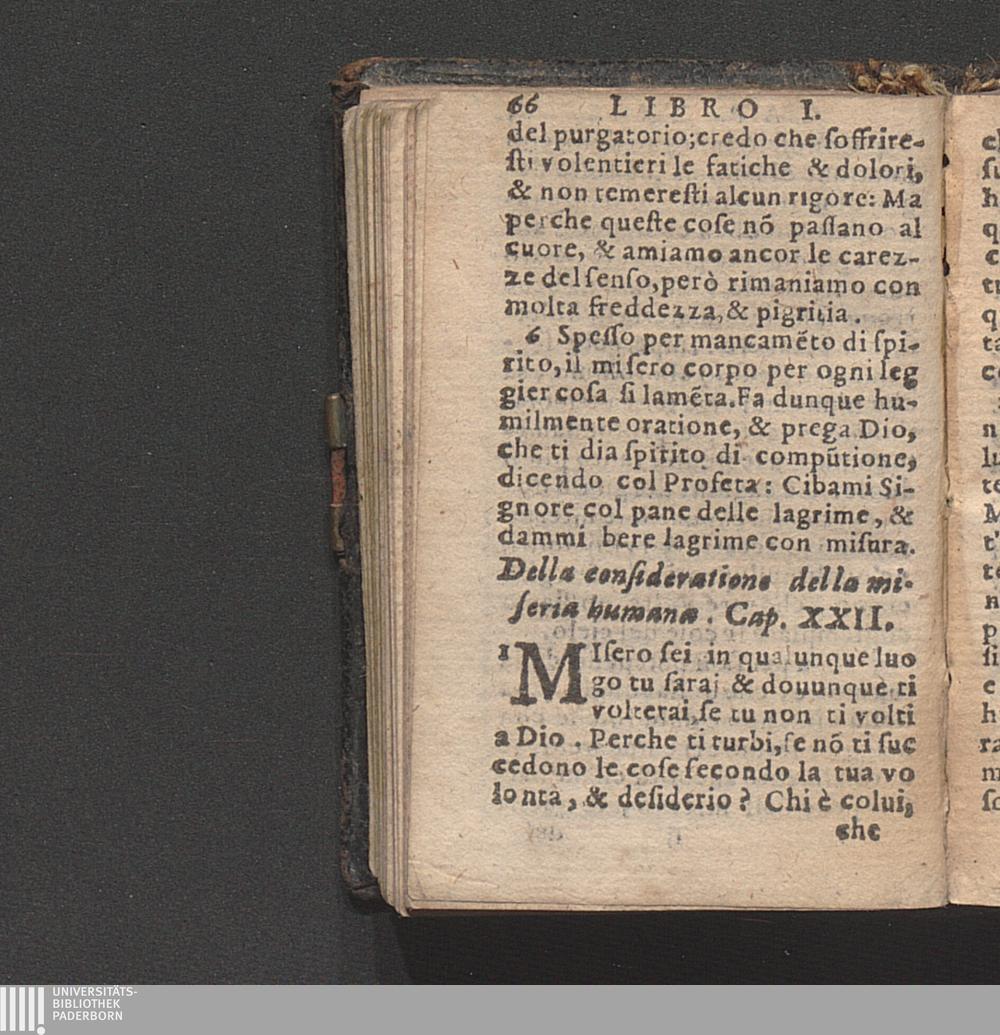 66 LIBRO I.
del purgatorio; credo che ſoffrire-
ſti volentieri le fatiche & dolori,
& non temereſti alcun rigore: Ma
perche queſte coſe nõ paſſano al
cuore, & amiamo ancor le carez-
ze del ſenſo, però rimaniamo con
molta freddezza, & pigritia.
6 Speſſo per mancamẽto di ſpi-
rito, il miſero corpo per ogni leg
gier coſa ſi lamẽta. Fa dunque hu-
milmente oratione, & prega Dio,
che ti dia ſpirito di compũtione,
dicendo col Profeta: Cibami Si-
gnore col pane delle lagrime, &
dammi bere lagrime con miſura.
Della conſideratione della mi-
ſeria humana. Cap. XXII.
1 MIſero ſei in qualunque luo
go tu ſarai & douunque ti
volterai, ſe tu non ti volti
a Dio. Perche ti turbi, ſe nõ ti ſuc
cedono le coſe ſecondo la tua vo
lontà, & deſiderio? Chi è colui,
che
UNIVERSITÄTS-
BIBLIOTHEK
PADERBORN